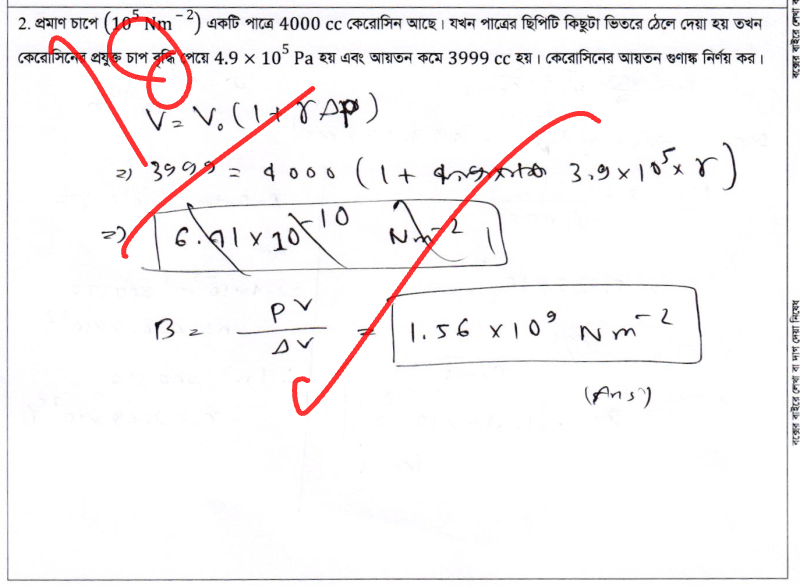 2. প্রমাণ চাপে (10⁵ Nm⁻²) একটি পাত্রে 4000 cc কেরোসিন আছে। যখন পাত্রের ছিপিটি কিছুটা ভিতরে ঠেলে দেয়া হয় তখন
কেরোসিনের প্রযুক্ত চাপ বৃদ্ধি পেয়ে 4.9 × 10⁵ Pa হয় এবং আয়তন কমে 3999 cc হয়। কেরোসিনের আয়তন গুণাঙ্ক নির্ণয় কর।
10
V = V₀ (1 + γΔp)
⇒) 3999 = 4000 (1 + 3.9 × 10⁵ × γ)
⇒) 6.41 × 10⁻¹⁰ Nm⁻²
B = PV/ΔV = 1.56 × 10⁹ Nm⁻²
(Ans)
বক্সের বাইরে লেখা বা দাগ দেয়া নিষেধ